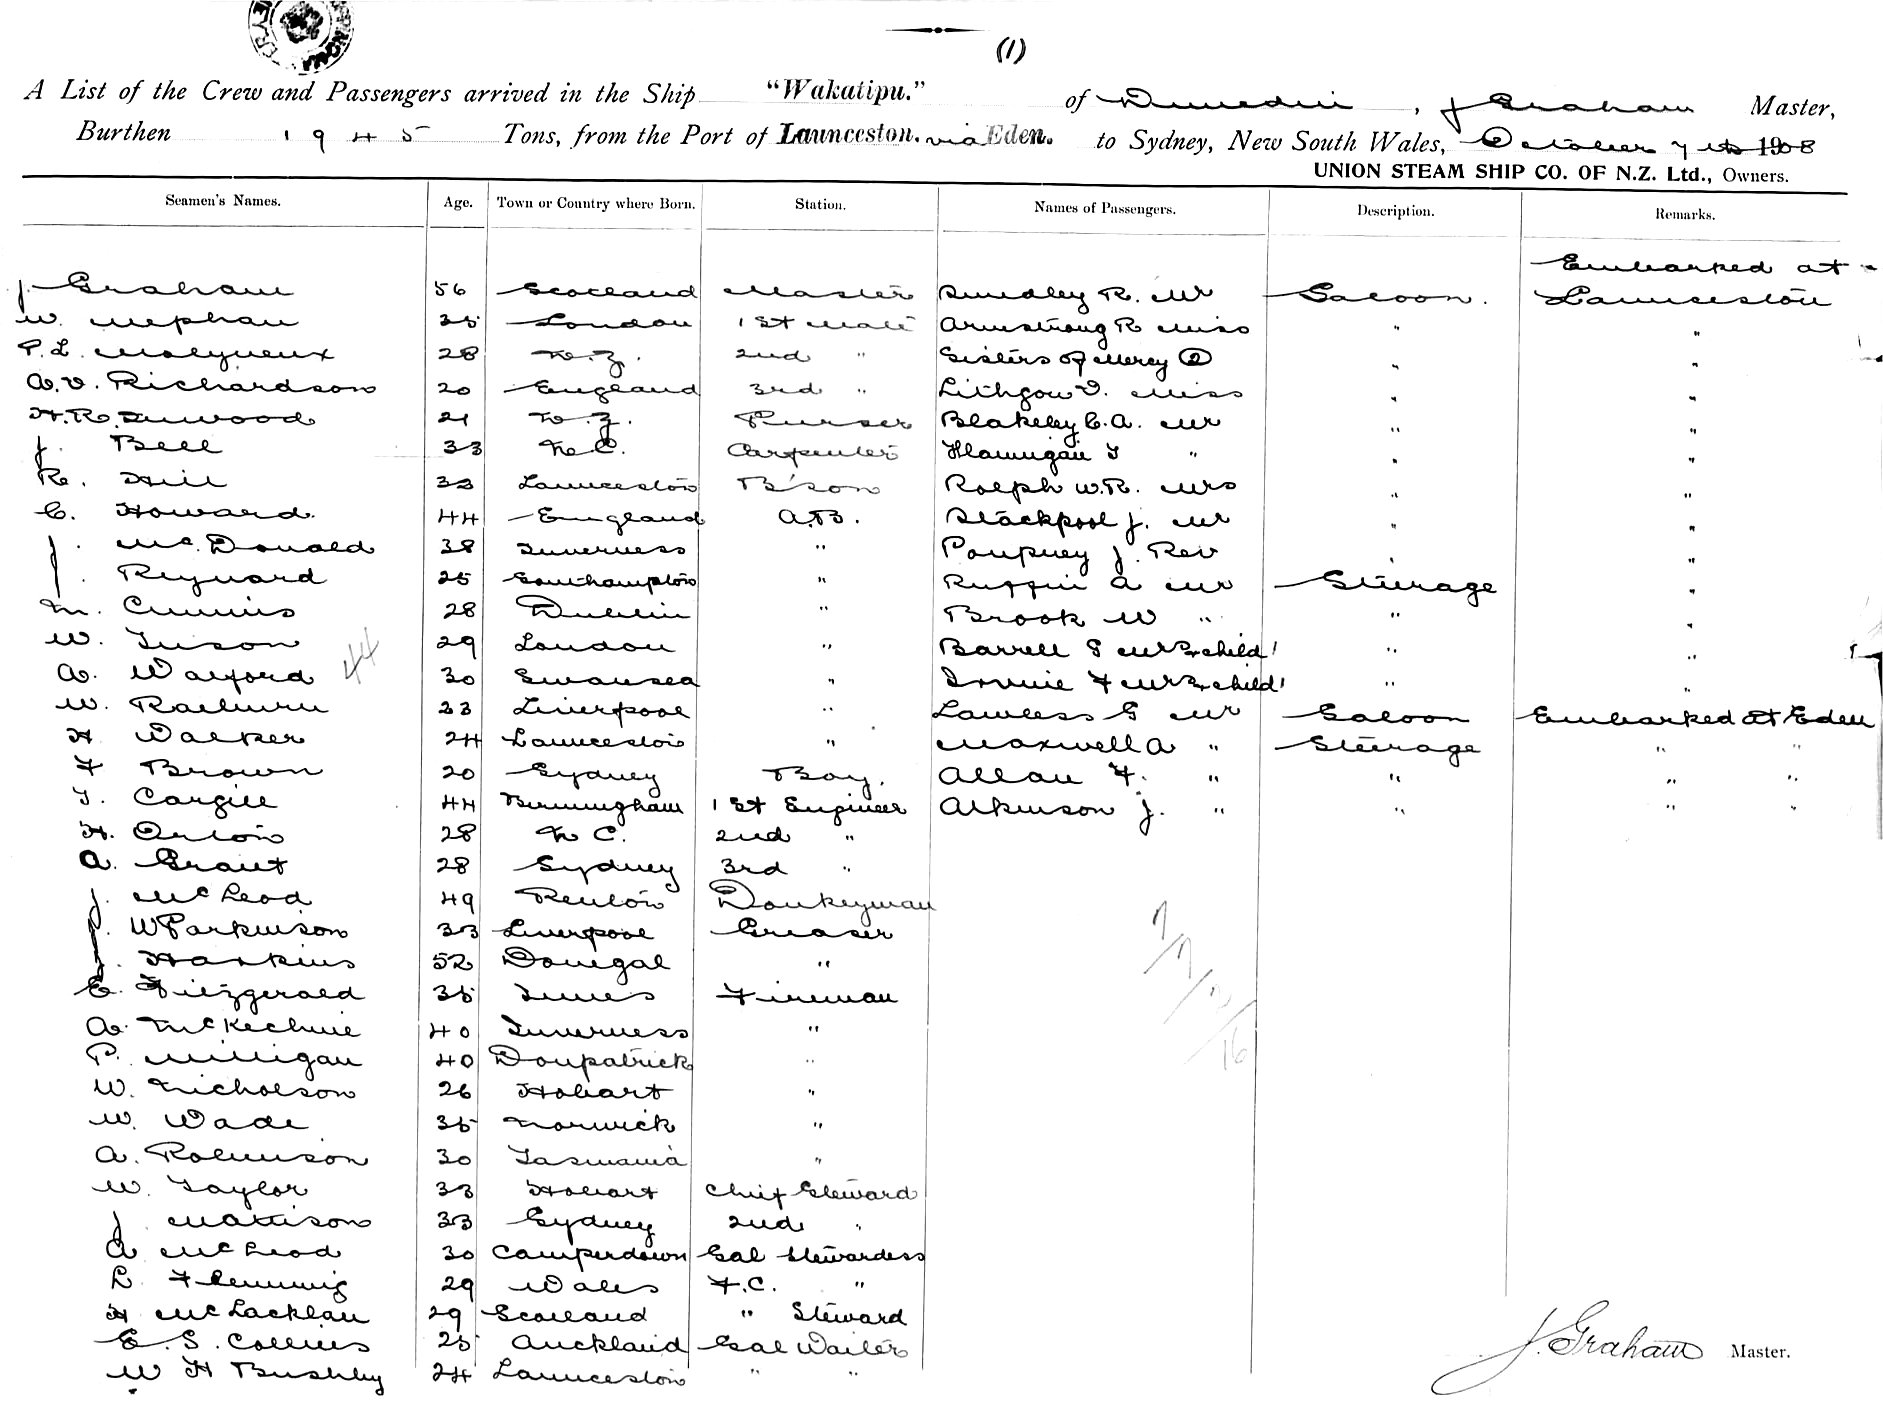 (1)
A List of the Crew and Passengers arrived in the Ship "Wakatipu." of Dunedin, J Graham Master,
Burthen 1945 Tons, from the Port of Launceston. via Eden. to Sydney, New South Wales, October 7th 1908
UNION STEAM SHIP CO. OF N.Z. Ltd., Owners.
Seamen's Names. Age. Town or Country where Born. Station. Names of Passengers. Description. Remarks.
Embarked at
J. Graham 56 Scotland Master R. Mr Saloon. Launceston
W. Mephan 35 London 1st Mate Armstrong R Miss " "
P.L. Molyneux 28 N.Z. 2nd " Sisters of Mercy (2) " "
A.V. Richardson 20 England 3rd " Lithgow V. Miss " "
H.R. Inwood 21 N.Z. Purser Blakeley C.A. Mr " "
J. Bell 33 N.C. Carpenter Flannigan T " " "
R. Hill 33 Launceston B'son Rolph W.R. Mrs " "
C. Howard. 44 England A.B. Stackpool J. Mr " "
J. McDonald 38 Inverness " J. Rev " "
J. Reynard 25 Southampton " Ruffin A Mr Steerage "
M. Cummins 28 Dublin " Brook W " " "
W. Tuson 29 London " Barrell S Mrs & child 1 " "
44
A. Walford 30 Swansea " Irvine F Mrs & child 1 " "
W. Raeburn 23 Liverpool " Lawless G Mr Saloon Embarked at Eden
H Walker 24 Launceston " Maxwell A " Steerage " "
F Brown 20 Sydney Boy. Allan F. " " " "
T. Cargill 44 Birmingham 1st Engineer Atkinson J. " " " "
H. Orton 28 N C. 2nd "
A. Grant 28 Sydney 3rd "
J. McLeod 49 Renton Donkeyman
J. W Parkinson 33 Liverpool Greaser
J. Harkins 52 Donegal "
E. Fitzgerald 35 Fireman
A. McKechnie 40 Inverness "
P. Milligan 40 Donpatrick "
W. Nicholson 26 Hobart "
W. Wade 35 Norwick "
A. Robinson 30 Tasmania "
W. Taylor 33 Hobart Chief Steward
J. Mattison 33 Sydney 2nd "
A McLeod 30 Camperdown Sal Stewardess
L. Flemming 29 Wales F.C. "
H McLachlan 29 Scotland " Steward
E. S. Collins 25 Auckland Sal Waiter
W H Bushby 24 Launceston " "
J. Graham Master.